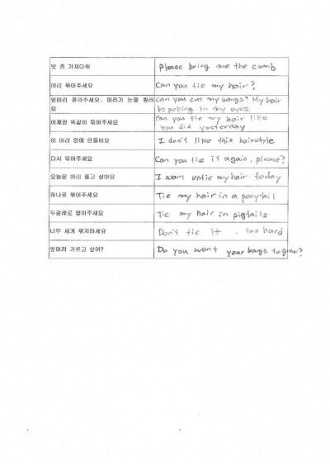 빗 좀 가져다줘
Please bring me the comb
머리 묶어주세요
Can you tie my hair?
앞머리 잘라주세요. 머리가 눈을 찔러
요
Can you cut my bangs? My hair
is poking in my eyes.
어제랑 똑같이 묶어주세요
Can you tie my hair like
you did yesterday
이 머리 맘에 안들어요
I don't like this hairstyle
다시 묶어주세요
Can you tie it again, please?
오늘은 머리 풀고 싶어요
I want untie my hair today
하나로 묶어주세요
Tie my hair in a ponytail
두갈래로 땋아주세요
Tie my hair in pigtails
너무 세게 묶지마세요
Don't tie it too hard
앞머리 기르고 싶어?
Do you want your bangs to grow?